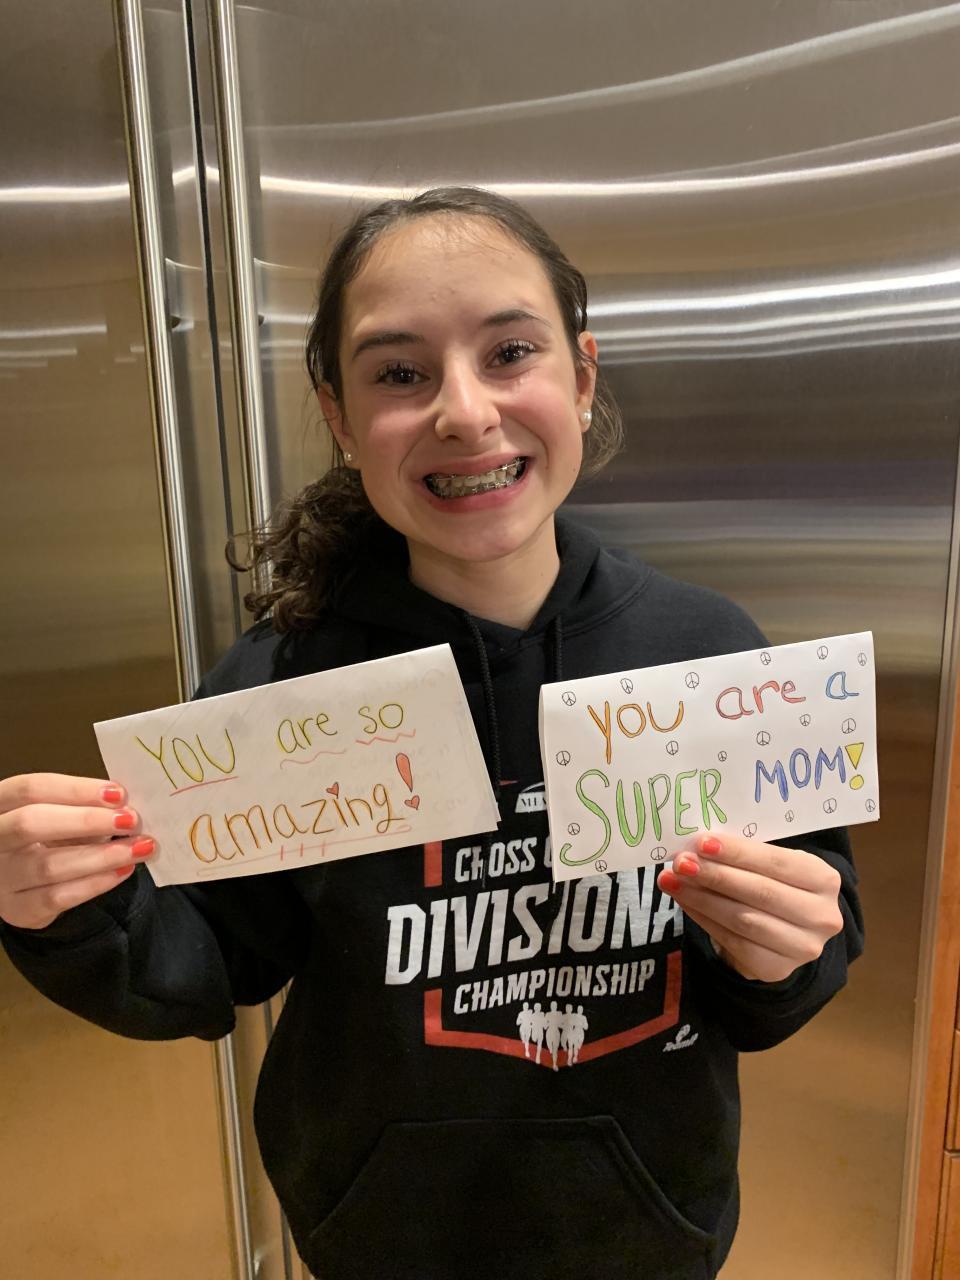 YOU are so
amazing!
YOU are a
SUPER MOM!
CROSS
DIVISIONA
CHAMPIONSHIP